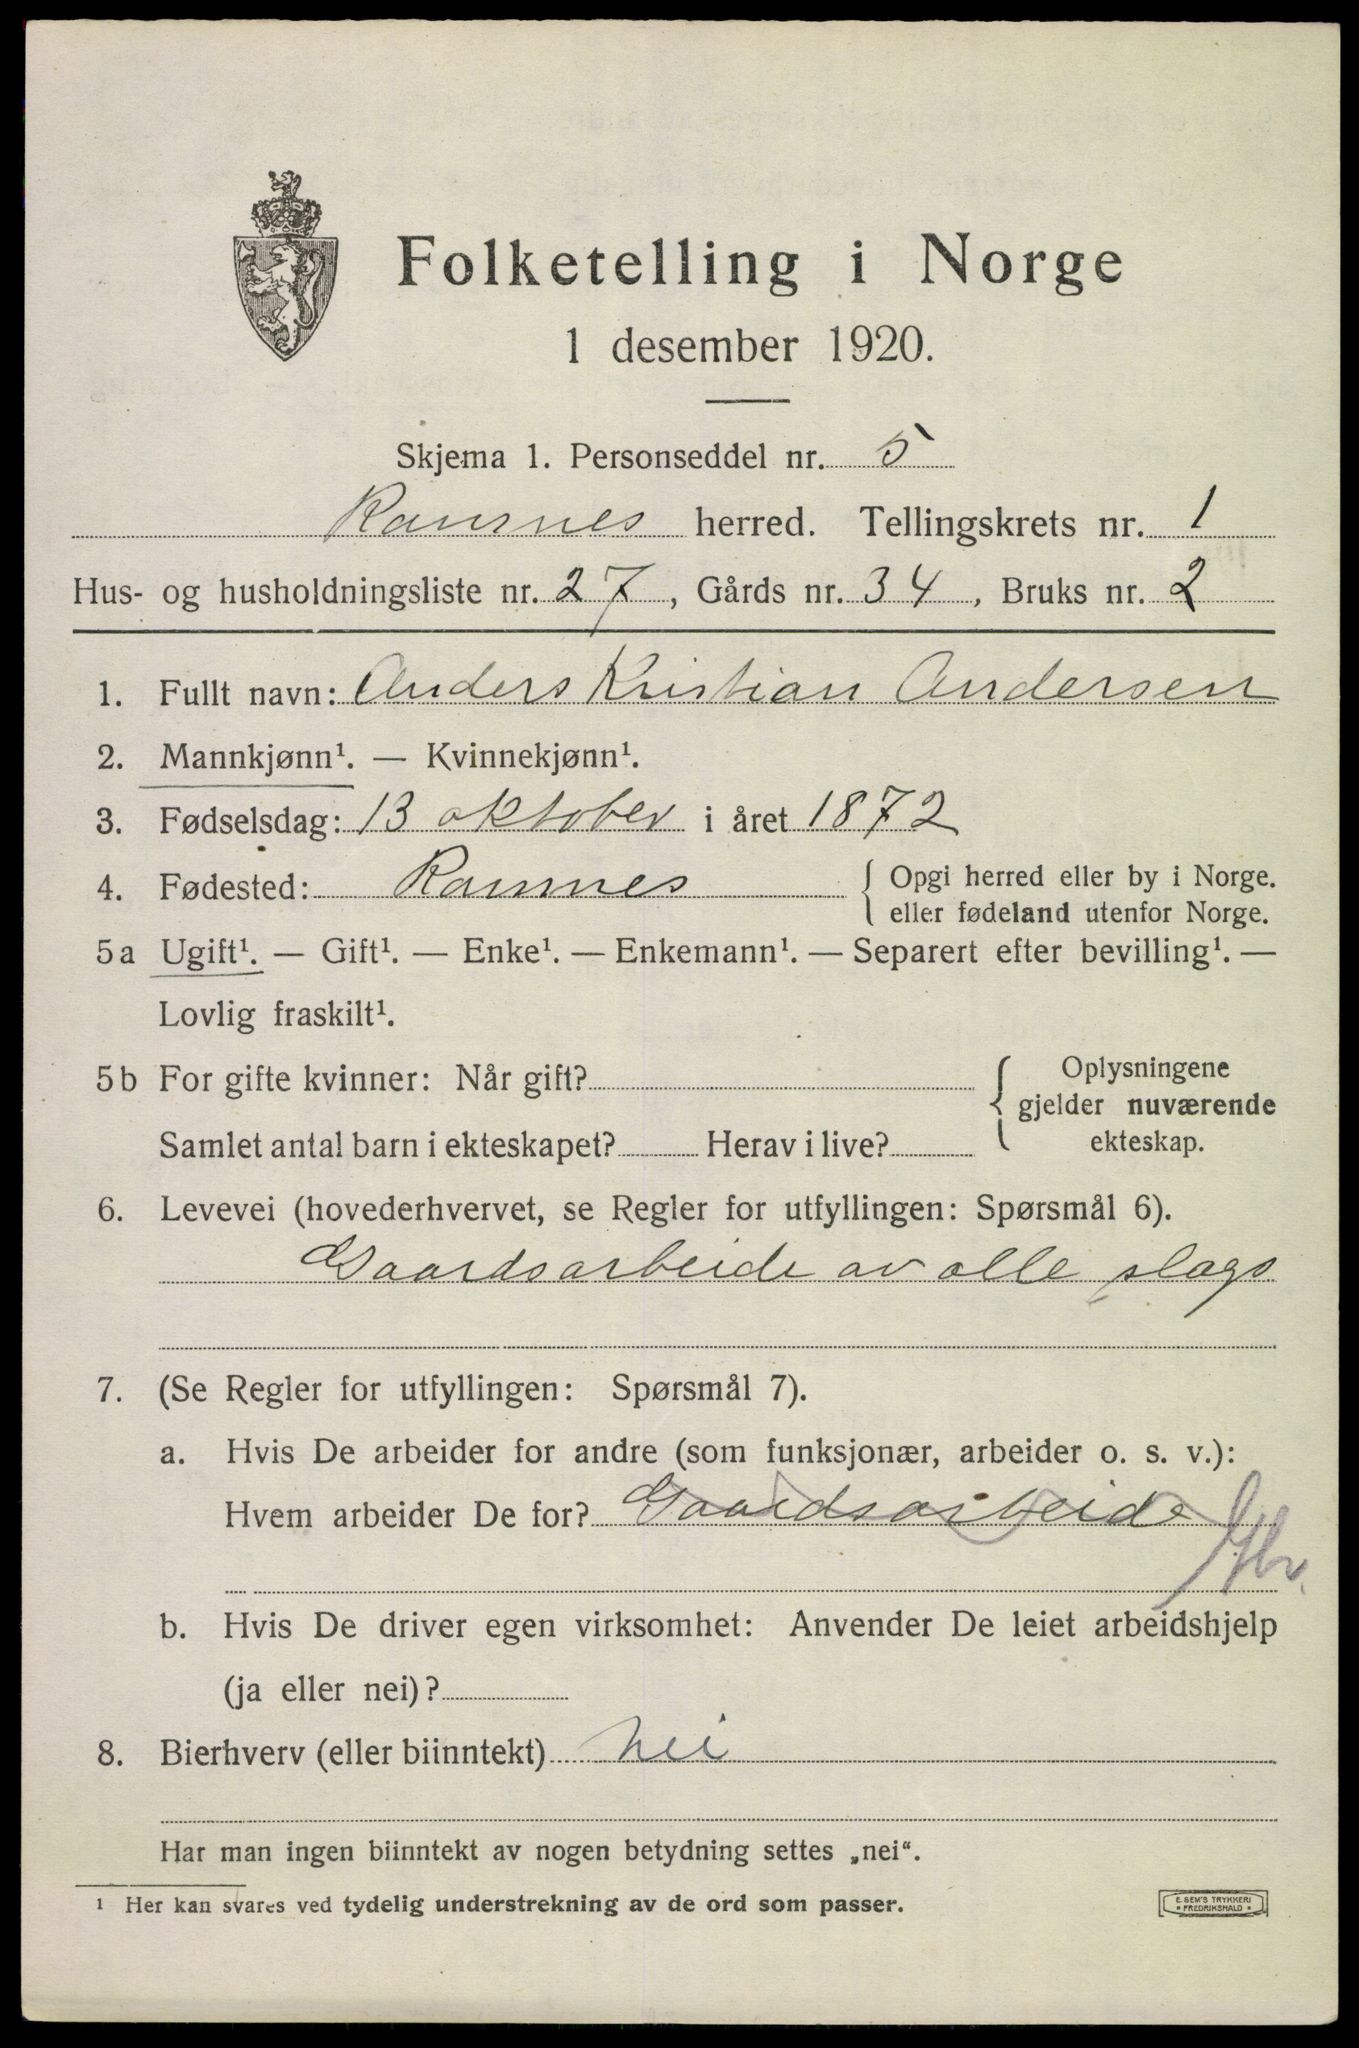 Folketelling i Norge
1 desember 1920.
Skjema 1. Personseddel nr. 5
Ramnes herred. Tellingskrets nr. 1
Hus- og husholdningsliste nr. 27, Gårds nr. 34, Bruks nr. 2
1. Fullt navn: Anders Kristian Andersen
2. Mannkjønn¹. — Kvinnekjønn¹.
3. Fødselsdag: 13 oktober i året 1872
4. Fødested: Ramnes { Opgi herred eller by i Norge.
eller fødeland utenfor Norge.
5a Ugift¹. — Gift¹. — Enke¹. — Enkemann¹. — Separert efter bevilling¹. —
Lovlig fraskilt¹.
5b For gifte kvinner: Når gift? { Oplysningene
gjelder nuværende
Samlet antal barn i ekteskapet? Herav i live? ekteskap.
6. Levevei (hovederhvervet, se Regler for utfyllingen: Spørsmål 6).
Gaardsarbeide av alle slags
7. (Se Regler for utfyllingen: Spørsmål 7).
a. Hvis De arbeider for andre (som funksjonær, arbeider o. s. v.):
Hvem arbeider De for? Gaardsarbeide
b. Hvis De driver egen virksomhet: Anvender De leiet arbeidshjelp
(ja eller nei)?
8. Bierhverv (eller biinntekt) nei
Har man ingen biinntekt av nogen betydning settes „nei“.
¹ Her kan svares ved tydelig understrekning av de ord som passer.
E. SEM'S TRYKKERI
• FREDRIKSHALD •